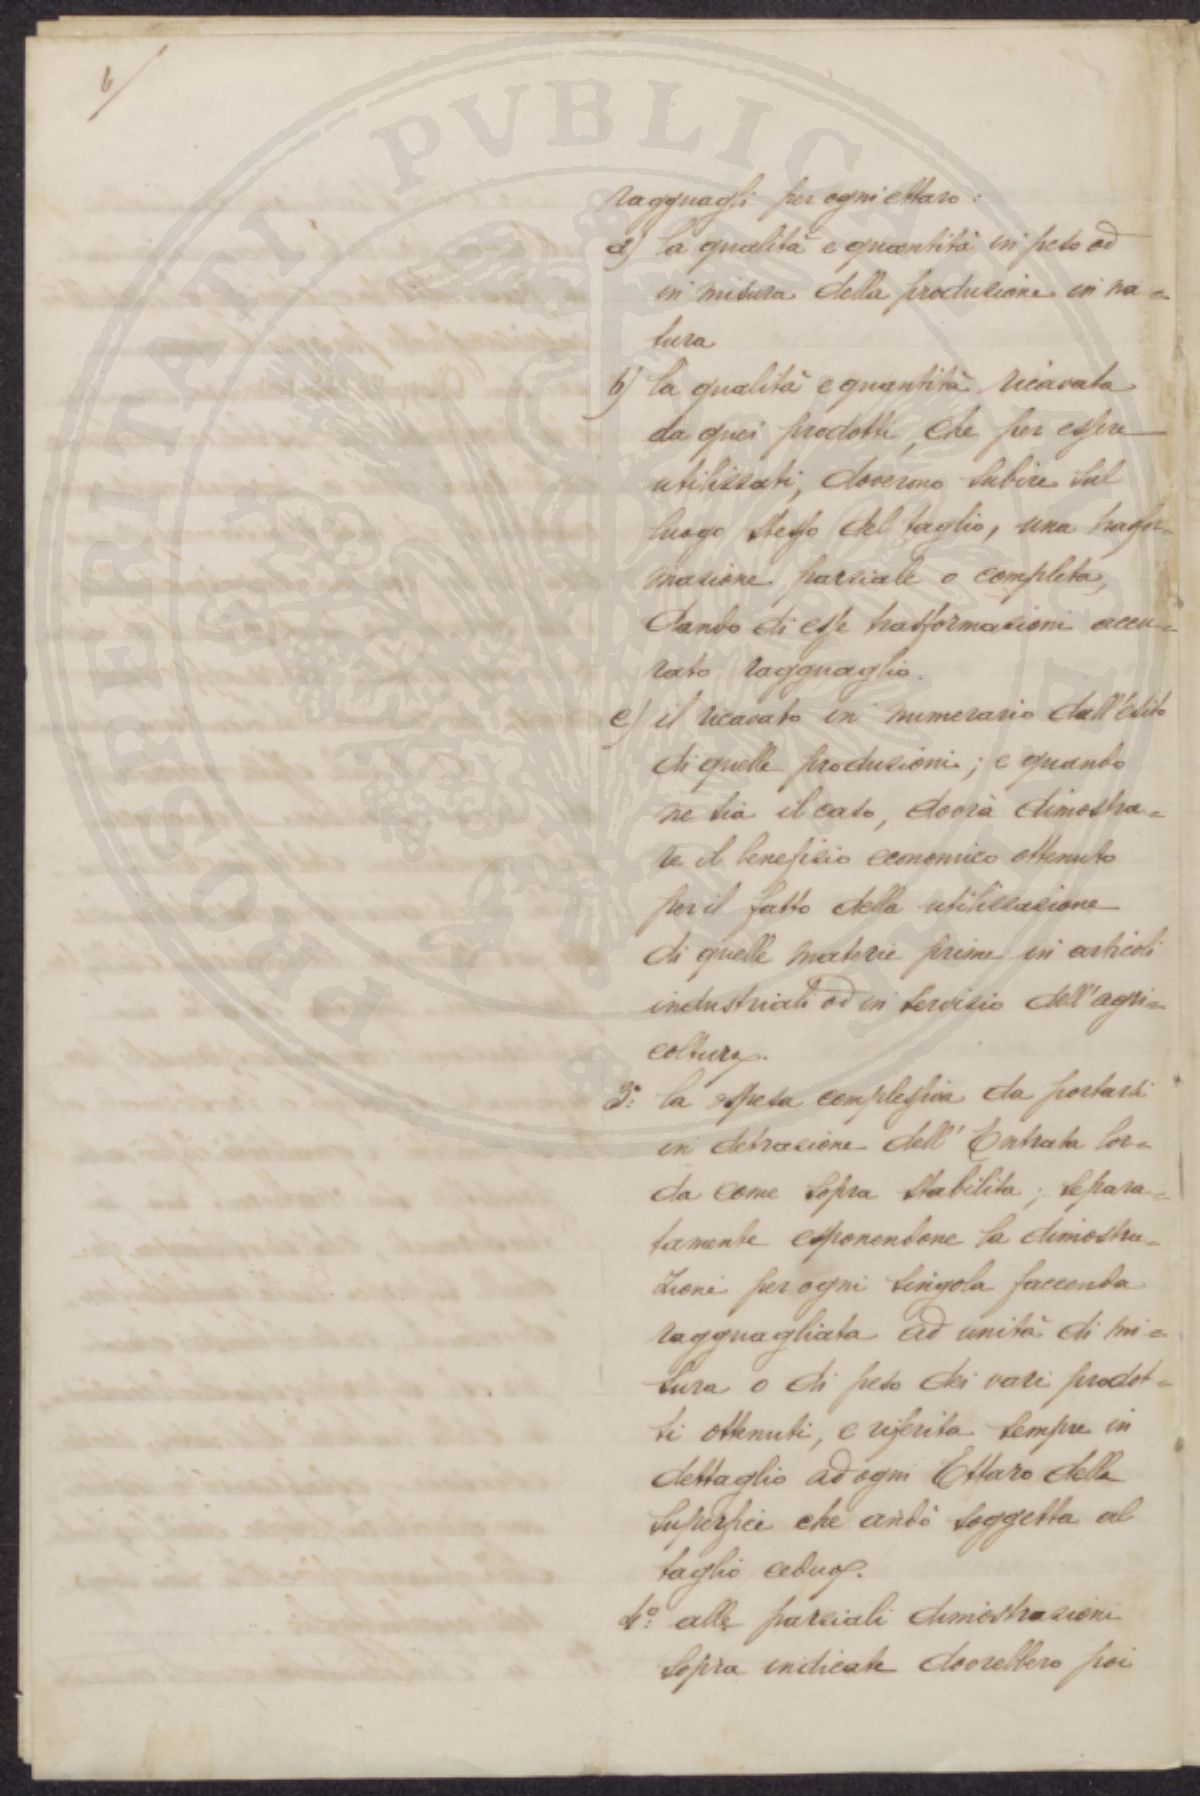 6
PROSPERITATI PUBLICAE
ragguagli per ogni ettaro:
a) la qualità e quantità in peso od
in misura della produzione in na=
tura
b) la qualità e quantità ricavata
da quei prodotti, che per essere
utilizzati, doverono subire sul
luogo stesso del taglio, una trasfor=
mazione parziale o completa,
dando di esse trasformazioni accu=
rato ragguaglio.
c) il ricavato in numerario dall'esito
di quelle produzioni; e quando
ne sia il caso, dovrà dimostra=
re il benefizio economico ottenuto
per il fatto della utilizzazione
di quelle materie prime in articoli
industriali od in servizio dell'agri=
coltura.
3º: la spesa complessiva da portarsi
in detrazione dell'Entrata lor=
da come sopra stabilita; separa=
tamente esponendone la dimostra=
zioni per ogni singola faccenda
ragguagliata ad unità di mi=
sura o di peso dei vari prodot=
ti ottenuti, e riferita sempre in
dettaglio ad ogni Ettaro della
superficie che andò soggetta al
taglio ceduo.
4º: alle parziali dimostrazioni
sopra indicate dovrebbero poi